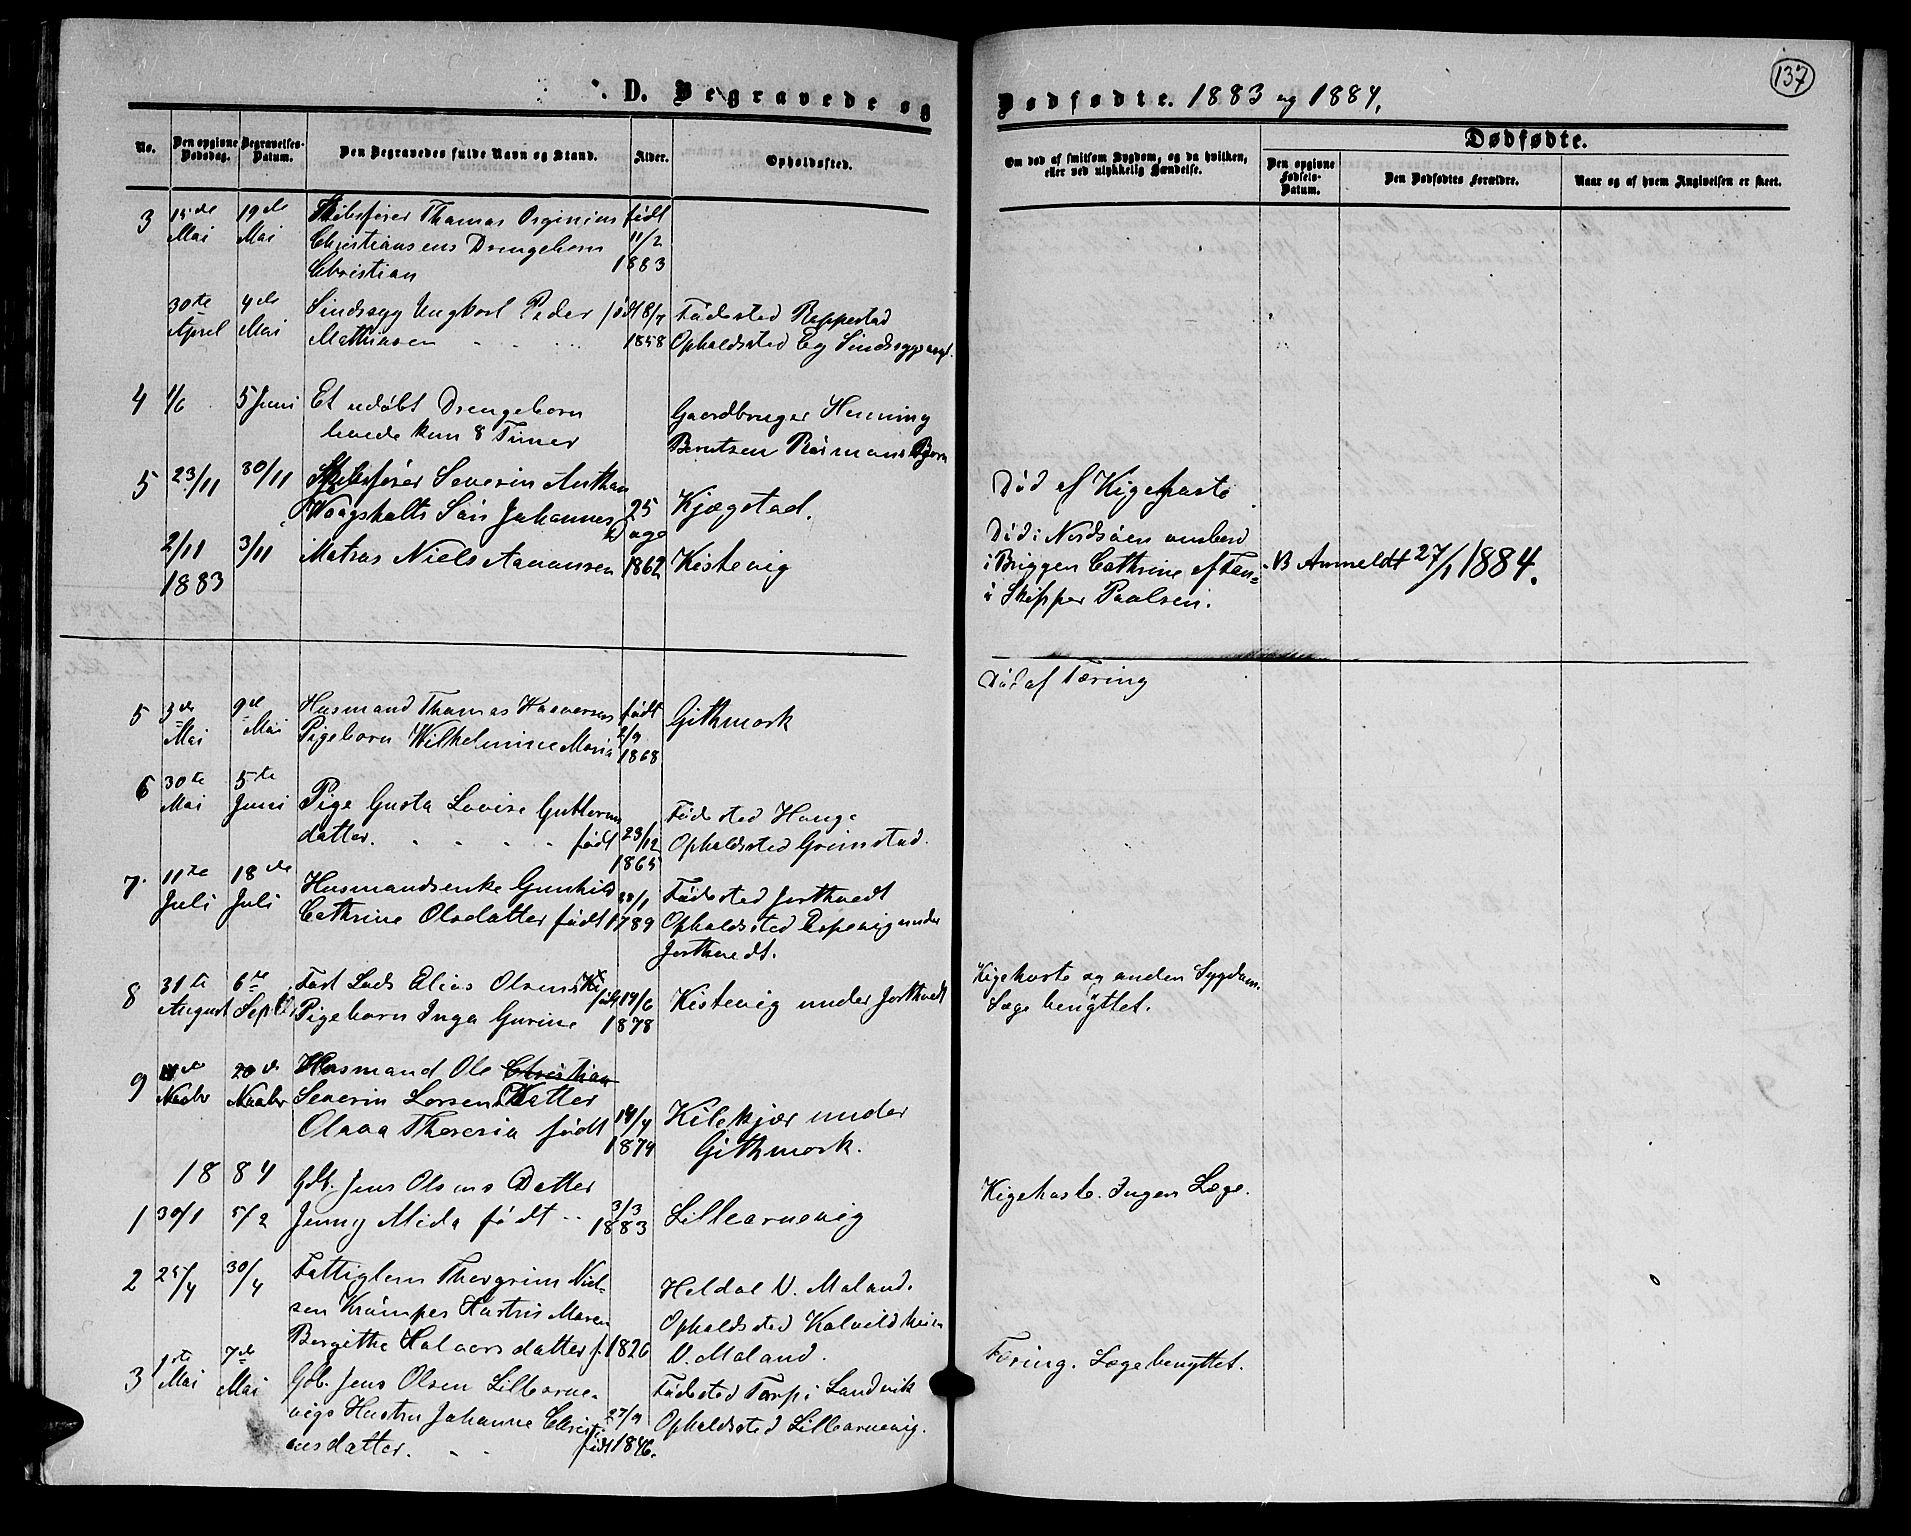 137
D. Begravede og Dødfødte. 1883 og 1884.
No.
Den opgivne Dødsdag.
Begravelses-Datum.
Den Begravedes fulde Navn og Stand.
Alder.
Opholdssted.
Om død af smitsom Sygdom, og da hvilken, eller ved ulykkelig Hændelse.
Dødfødte.
Den opgivne Fødsels-Datum.
Den Dødfødtes Forældre.
Naar og af hvem Angivelsen er skeet.
3 15de 19de Skibsfører Thomas født
Mai Mai Christiansens Drengebarn 11/2
Christian 1883
30te 4de Sindssyg Ungkarl Peder født 8/7 Fødested Reppestad
April Mai Mathiasen 1858 Opholdssted Eg
4 1/6 5 Juni Et udøbt Drengebarn Gaardbruger Henning
levede kun 8 Timer Berntsen
5 23/11 30/11 Skibsfører Severin Anthon Død af Kighoste
Vaagsholts Søn Johannes 25 Dage Kjægstad.
2/11 3/11 Matros Niels Aanonsen 1862 Kistevig
1883
Død i Nordsøen ombord
i Briggen Cathrine af
Skipper Paulsen.
Anmeldt 27/1 1884.
5 3de 9de Husmand Thomas født Githmark Død af Tæring
Mai Mai Pigebarn Wilhelmine Maria 2/9
1868
6 30te 5te Pige Gusta Lovise Guttorms Fødested Hauge
Mai Juni datter. født 23/12 Opholdssted Grimstad.
1865
7. 11te 18de Husmandsenke Gunhild Fødested Jorthvedt
Juli Juli Cathrine Olsdatter født 1789 Opholdssted Espevig under
Jortvedt.
8 31te 6te Fast Lods Elias Olsens født 19/6 Kistevig under Jorthvedt Kigehoste og anden Sygdom.
August Septb Pigebarn Inga Gurine 1878 Læge benyttet.
9 20de Husmand Ole Christian
Novbr Novbr Severin Larsens Datter 14/4 Kilekjær under
Olava Theresia født 1874 Githmark.
1884 Gdb. Jens Olsens Datter
1 30/1 5/2 Jenny Alida født 3/3 1883 Lillearnevig Kigehoste. Ingen Læge.
2 25/4 30/4 Fattiglem Thorgrim Niel- Heldal V. Moland.
sen Krømpes Hustru Maren Opholdssted
Bergithe Halvorsdatter f. 1826 V. Moland.
3 1ste 7de Gdb. Jens Olsen Lillearne- Fødested Torp i Landvik Tæring. Læge benyttet.
Mai Mai vigs Hustru Johanne Christi- 27/9 Opholdssted Lillearnevig.
ansdatter. født 1846.